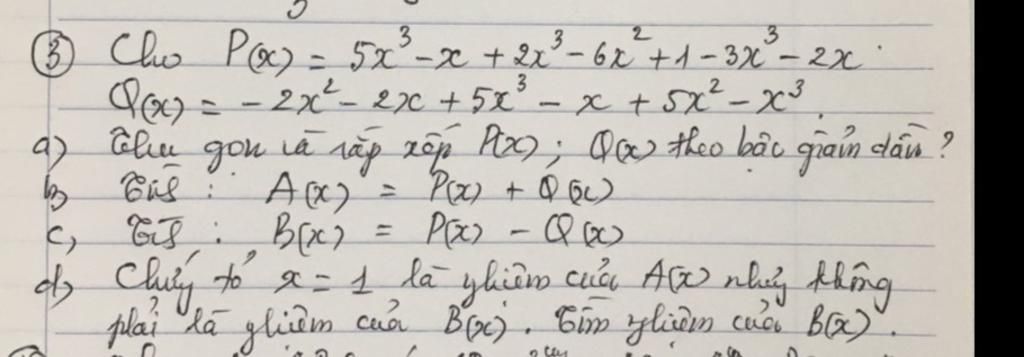 ③ Cho P(x) = 5x³ - x + 2x³ - 6x² + 1 - 3x³ - 2x.
Q(x) = - 2x² - 2x + 5x³ - x + 5x² - x³.
a) Thu gọn và sắp xếp P(x); Q(x) theo bậc giảm dần?
b, Tính : A(x) = P(x) + Q(x)
c, Tính : B(x) = P(x) - Q(x)
d, Chứng tỏ x = 1 là nghiệm của A(x) nhưng không
phải là nghiệm của B(x). Tìm nghiệm của B(x).